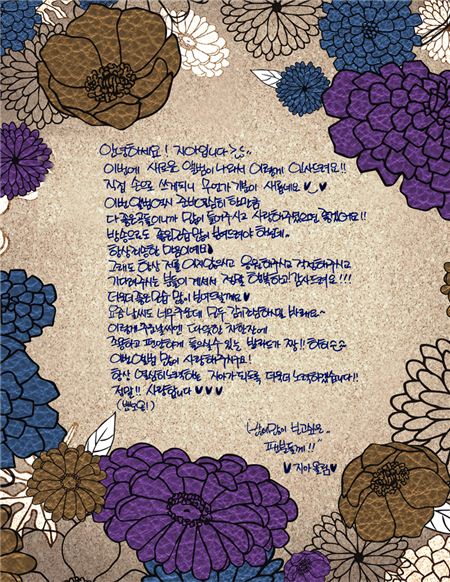 안녕하세요! 지아입니다 >_<..
이번에 새로운 앨범이 나와서 이렇게 인사드려요!!
직접 손으로 쓰게되니 무언가 기분이 새롭네요 ♥‿♥
이번앨범 역시 준비 열심히 한만큼
다 좋은곡들이니까 많이 들어주시고 사랑해주셨으면 좋겠어요!!
방송으로도 좋은모습 많이 보여드려야 하는데..
항상 죄송한 마음이에요♥
그래도 항상 저를 잊지않으시고 응원해주시고 걱정해주시고
기다려주시는 분들이 계셔서 정말 행복하고! 감사드려요!!!
더욱더 좋은모습 많이 보여드릴게요♥
요즘 날씨도 너무추운데 모두 감기조심하길 바래요~
이렇게 추운날씨엔 다욱한 차한잔에
조용하고 편안하게 들으실수 있는 발라드가 짱!! 하하
이번앨범 많이 사랑해주시구요!
항상 열심히 노력하는 지아가 되도록 더욱더 노력하겠습니다!!
정말!! 사랑합니다 ♥♥♥
(뽀뽀!)
너무너무 많이 보고싶은..
팬분들께!!
♥ 지아올림 ♥